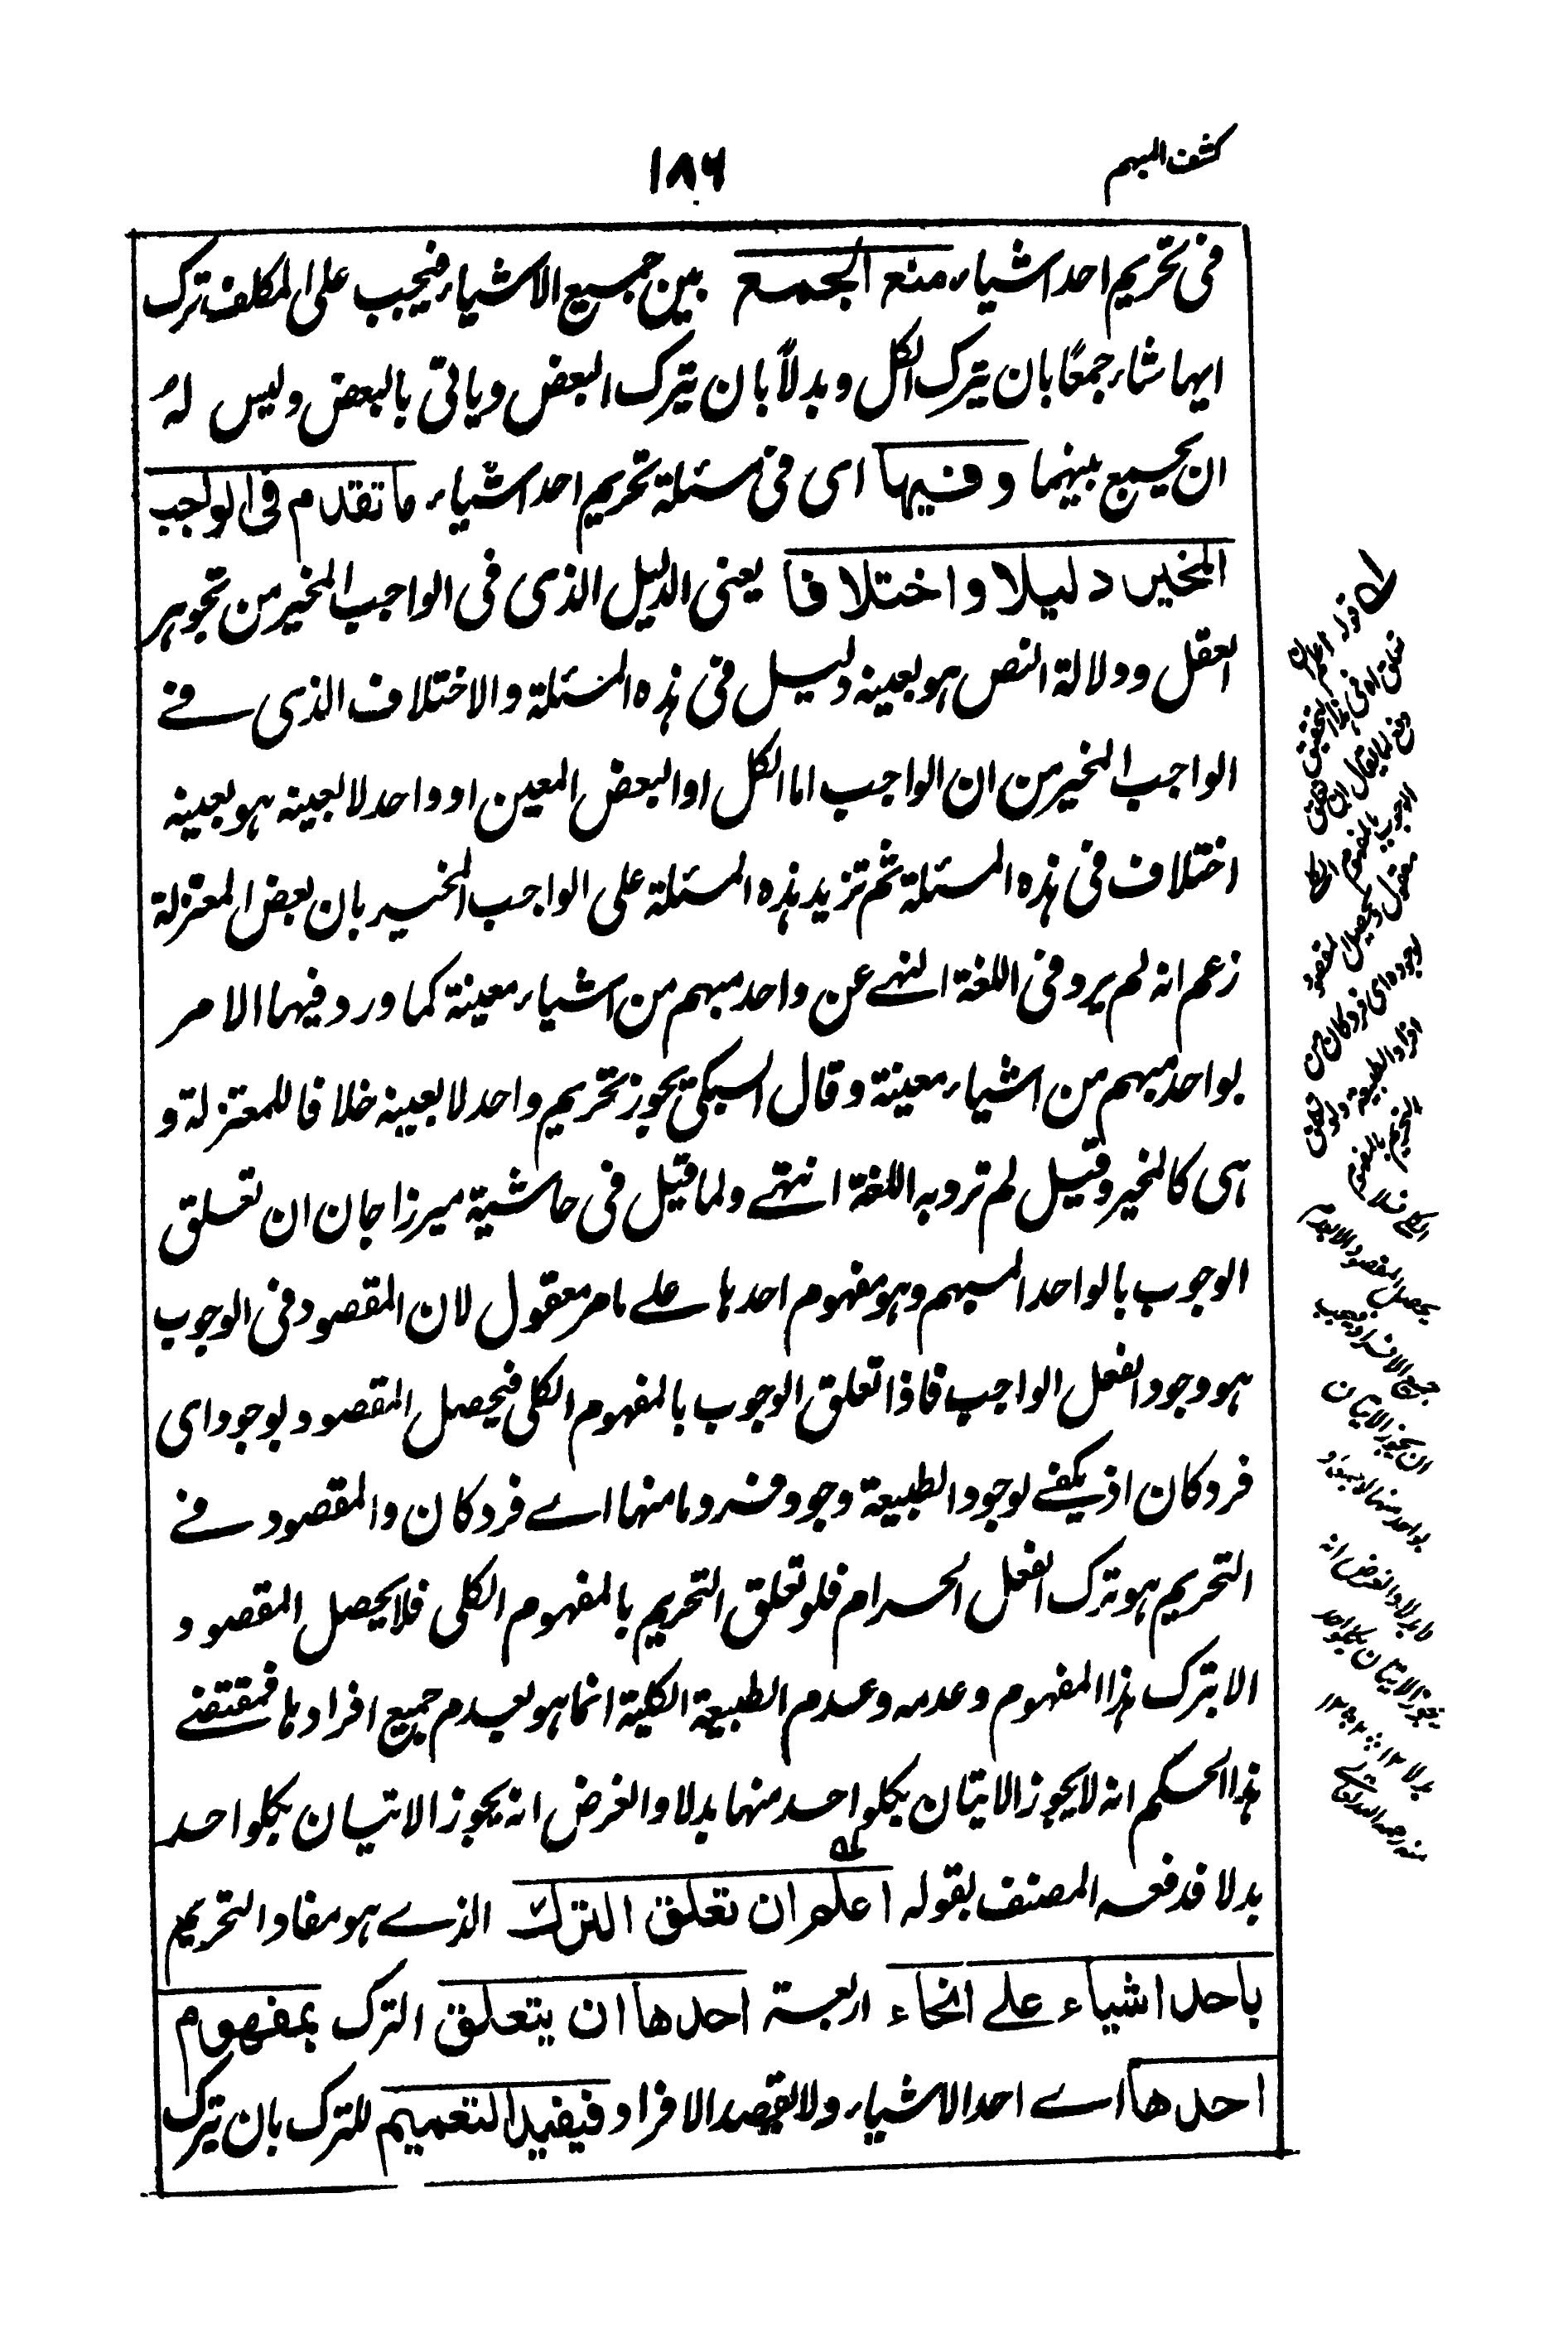 كشف المبهم
١٨٦
فى تحريم احد اشياء منع الجمع بين جميع الاشياء فيجب على المكلف ترك
ايها شاء جمعًا بان يترك الكل وبدلاً بان يترك البعض وياتى بالبعض وليس له
ان يجمع بينهما وفيها اى فى مسئلة تحريم احد اشياء ما تقدم فى الواجب
المخير دليلا واختلافا يعنى الدليل الذى فى الواجب المخير من تجوهر
العقل ودلالة النص هو بعينه دليل فى هذه المسئلة والاختلاف الذى فے
الواجب المخير من ان الواجب اما الكل او البعض المعين او واحد لا بعينه هو بعينه
اختلاف فى هذه المسئلة ثم تزيد هذه المسئلة على الواجب المخير بان بعض المعتزلة
زعم انه لم يرد فى اللغة النهے عن واحد مبهم من اشياء معينة كما ورد فيهما الامر
بواحد مبهم من اشياء معينة وقال السبكى يجوز تحريم واحد لا بعينه خلافا للمعتزلة و
هى كالمخير وقيل لم ترد به اللغة انتهے ولما قيل فى حاشية ميرزا جان ان تعلق
الوجوب بالواحد المبهم وهو مفهوم احدها علے ما مر معقول لان المقصود فى الوجوب
هو وجود الفعل الواجب فاذا تعلق الوجوب بالمفهوم الكلى فيحصل المقصود بوجود اى
فرد كان اذ يكفے لوجود الطبيعة وجود فرد ما منها اے فرد كان والمقصود فے
التحريم هو ترك الفعل الحرام فلو تعلق التحريم بالمفهوم الكلى فلا يحصل المقصود
الا بترك هذا المفهوم وعدمه وعدم الطبيعة الكلية انما هو بعدم جميع افرادها فمقتضے
هذا الحكم انه لا يجوز الاتيان بكلواحد منها بدلا والغرض انه يجوز الاتيان بكلواحد
بدلا فدفعه المصنف بقوله اعلم ان تعلق الترك الذے هو مفاد التحريم
باحد اشياء علے انحاء اربعة احدها ان يتعلق الترك بمفهوم
احدها اے احد الاشياء ولا يقصد الافراد فيفيد التعميم للترك بان يترك
قوله اعلم ان
تعلق اه فى هذا التحقيق
دفع لما يقال ان تعلق
الوجوب بالمفهوم الكلى
معقول ويحصل المقصود
بوجود اى فرد كان من
افراد الطبيعة ولو تعلق
التحريم بالمفهوم
الكلى فلا
يحصل المقصود الا بعدم
جميع الافراد فيجب
ان يجوز الاتيان
بواحد منها لا جمعا و
لا بدلا والغرض انه
يجوز الاتيان بكلواحد
بدلا ١٢
منه رحمه الله تعالے